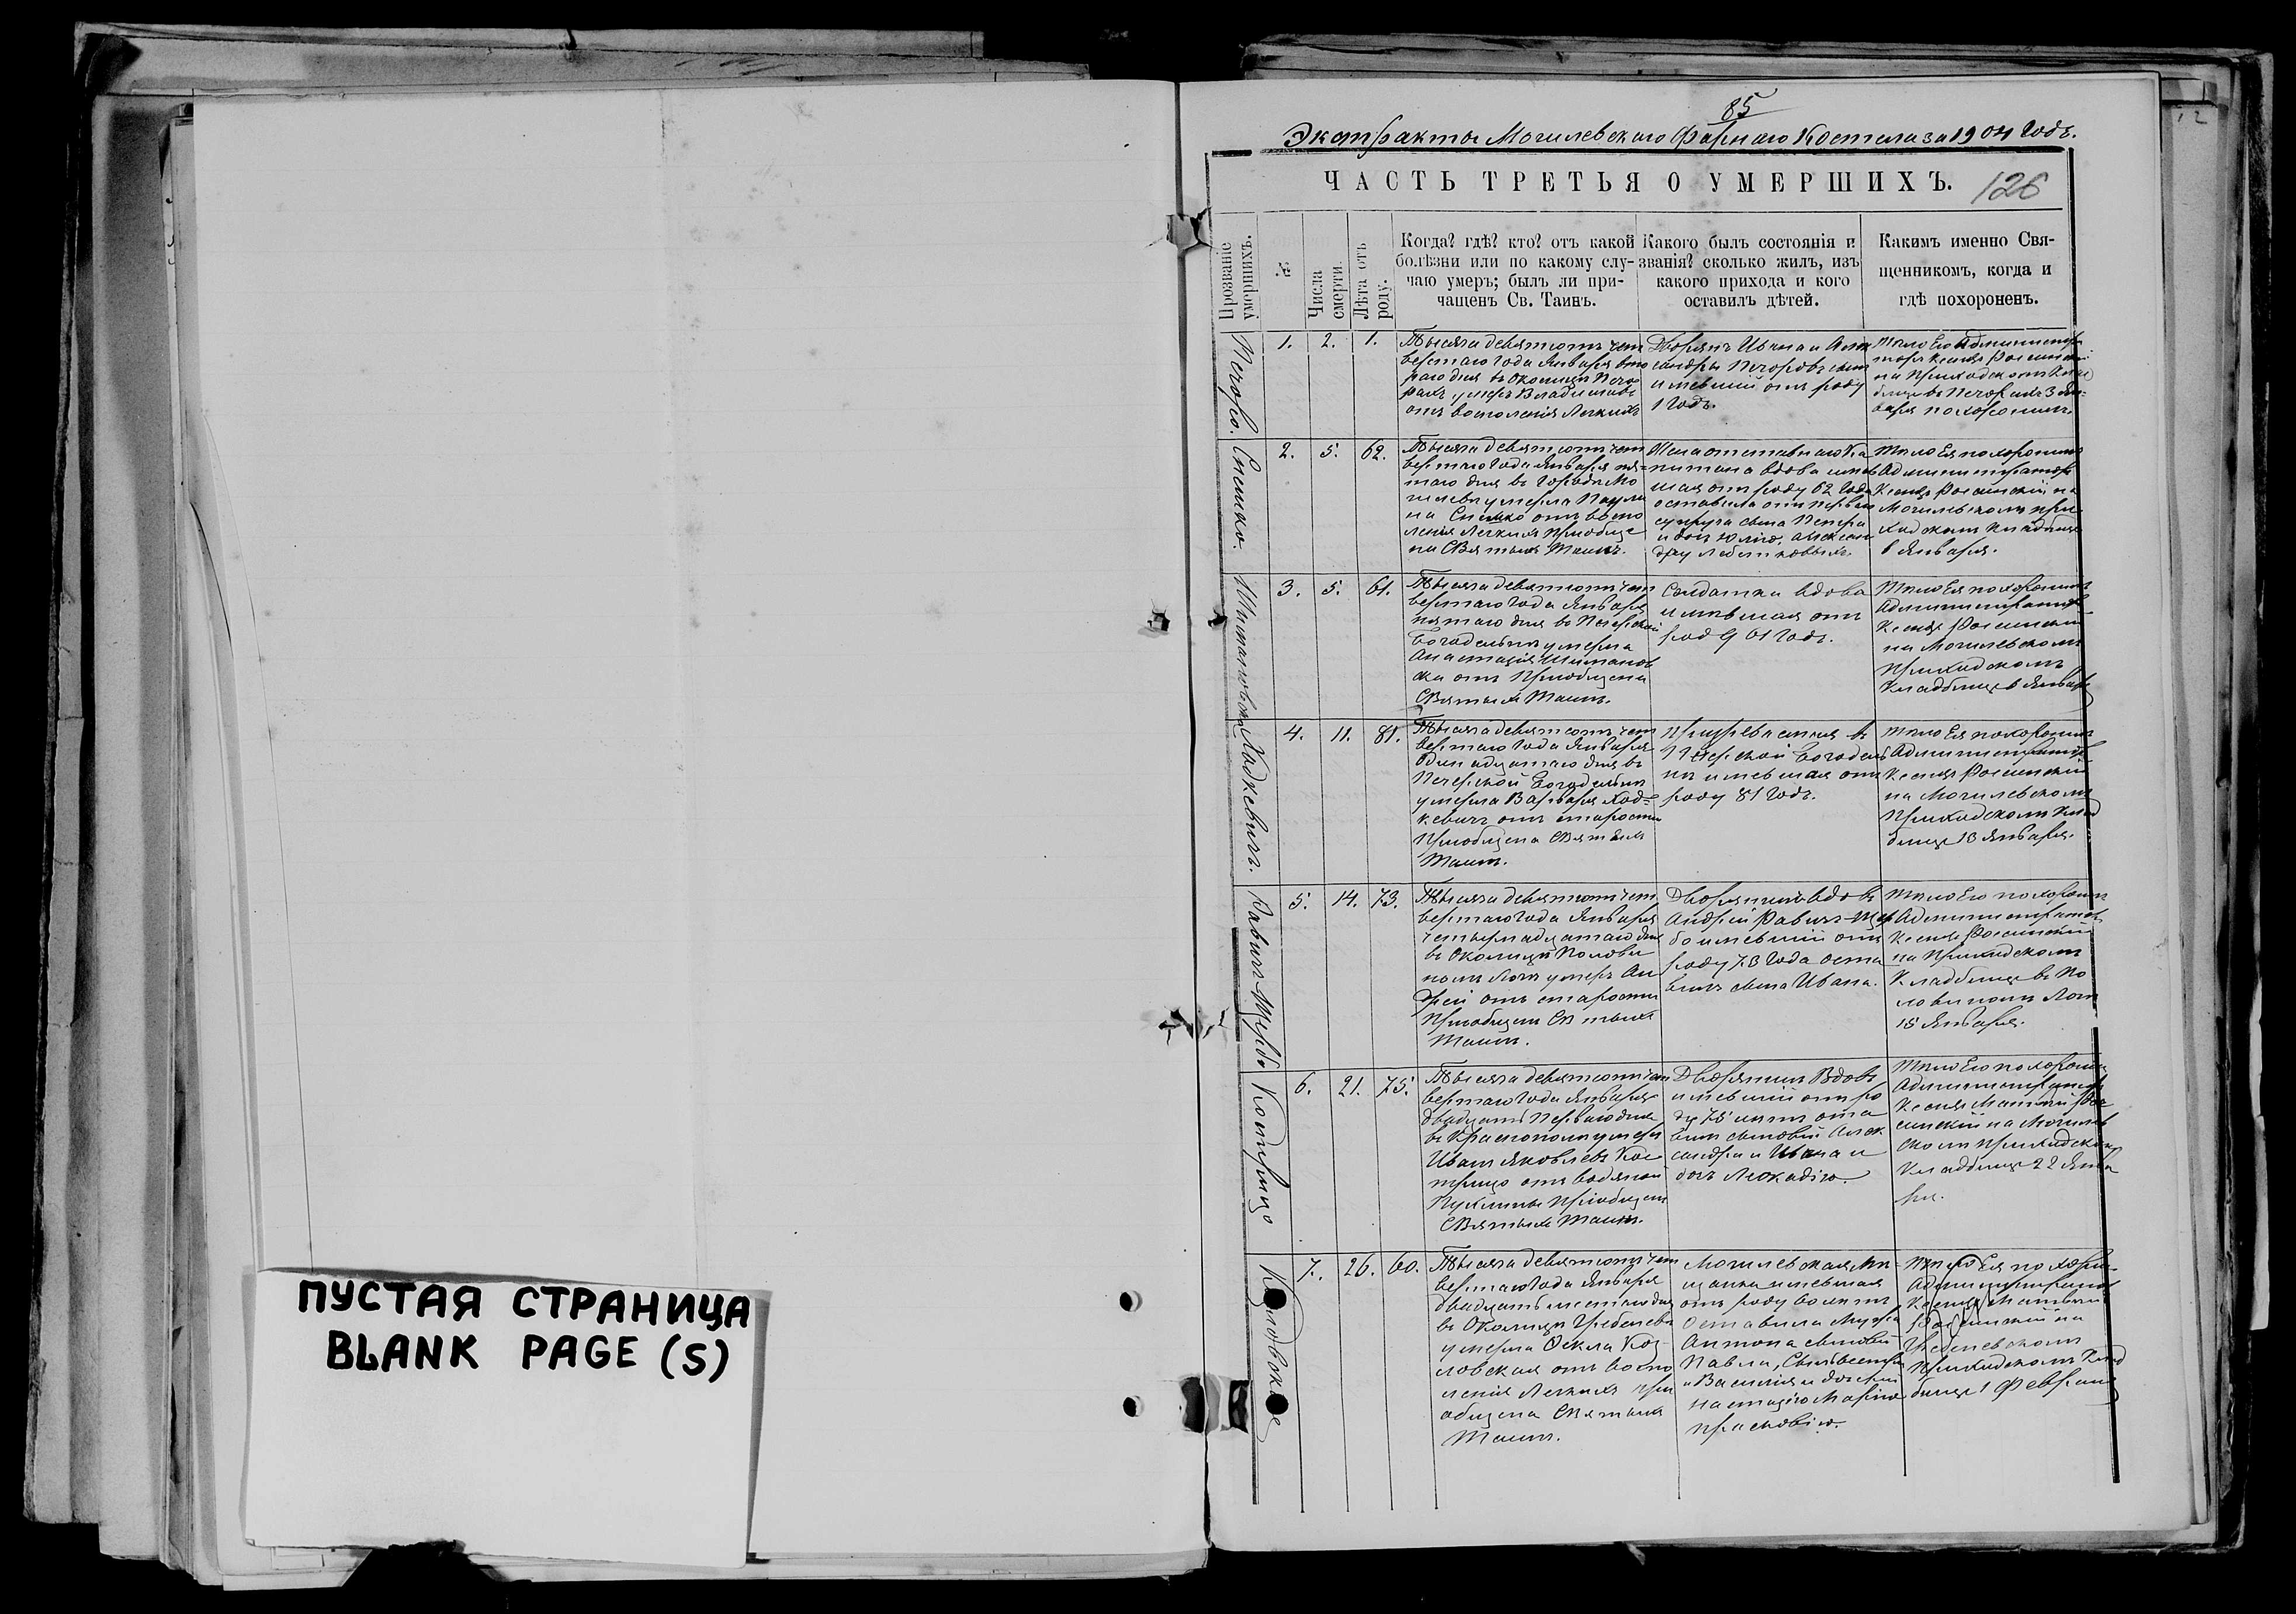 ПУСТАЯ СТРАНИЦА
BLANK PAGE (S)
85
Экстракты Могилевскаго Фарнаго Костела за 1904 годъ.
ЧАСТЬ ТРЕТЬЯ О УМЕРШИХЪ.
126
Прозваніе
умершихъ.
№
Числа
смерти.
Лѣта отъ
роду.
Когда? гдѣ? кто? отъ какой
болѣзни или по какому слу-
чаю умеръ; былъ ли при-
чащенъ Св. Таинъ.
Какого былъ состоянія и
званія? сколько жилъ, изъ
какого прихода и кого
оставилъ дѣтей.
Какимъ именно Свя-
щенникомъ, когда и
гдѣ похороненъ.
1.
2.
1.
Тысяча девятсотъ чет
вертаго года Января вто
раго дня въ Околицѣ Печо
рахъ умеръ Владиславъ
отъ воспаленія Легкихъ
Дворянъ Ивана и Алек
сандры сынъ
имевшій отъ роду
1 годъ.
Тѣло Его Администра
торъ Ксендзъ
на Приходскомъ Клад
бище въ 3 Ян-
варя похоронилъ.
Спешко.
2.
5.
62.
Тысяча девятсотъ чет
вертаго года Января пя-
таго дня въ Городѣ Мо
гилевѣ умерла Паули
на Спешко отъ воспа
ленія Легкихъ приобще
на Святыхъ Таинъ.
отставнаго Ка
питана вдова имев
шая отъ роду 62 года
оставила отъ перваго
супруга сына Петра
и доч Юлію, Алексан
дру
Тѣло Ея похоронилъ
Администраторъ
Ксендзъ на
Могилевскомъ при
ходскомъ Кладбище
8 Января.
3.
5.
61.
Тысяча девятсотъ чет
вертаго года Января
пятаго дня въ Печерской
Богадельнѣ умерла
Анастазія Шиманов
ска отъ Приобщена
Святыхъ Таинъ.
Солдатка вдова
имѣвшая отъ
роду 61 годъ.
Тѣло Ея похоронилъ
Администраторъ
Ксендзъ
на Могилевскомъ
Приходскомъ
Кладбище 8 Января
Ходкевичъ.
4.
11.
81.
Тысяча девятсотъ чет
вертаго года Января
одинадцатаго дня въ
Печерской Богадельнѣ
умерла Варвара Ход-
кевичъ отъ старости
Приобщена Святыхъ
Таинъ.
Призреваемая въ
Печерской Богадель
нѣ имевшая отъ
роду 81 годъ.
Тѣло Ея похоронилъ
Администраторъ
Ксендзъ
на Могилевскомъ
Приходскомъ Клад
бище 13 Января.
5.
14.
73.
Тысяча девятсотъ чет
вертаго года Января
четырнадцатаго дня
въ Околицѣ Полови
номъ Логѣ умеръ Ан
дрей отъ старости
Приобщенъ Святыхъ
Таинъ.
Дворянинъ вдовъ
Андрей
имевшій отъ
роду 73 года оста
вилъ сына Ивана.
Тѣло Его похоронилъ
Администраторъ
Ксендзъ
на Приходскомъ
Кладбище въ По
ловиномъ Логѣ
15 Января.
6.
21.
75.
Тысяча девятсотъ чет
вертаго года Января
двадцать Перваго дня
въ Краснополи умеръ
Иванъ Яковлевъ
отъ водяной
Пухлины Пріобщенъ
Святыхъ Таинъ.
Дворянинъ Вдовъ
имевшій отъ ро
ду 75 лѣтъ оста
вилъ сыновей Алек
сандра и Ивана и
доч Леокадію.
Тѣло Его похоронилъ
Администраторъ
Ксендзъ Матвей
на Могилев
скомъ приходскомъ
Кладбище 22 Янва
ря.
Козловская
7.
26.
60.
Тысяча девятсотъ чет
вертаго года Января
двадцать шестаго дня
въ Околицѣ Гребенево
умерла Фекла Коз-
ловская отъ воспа
ленія Легкихъ при
общена Святыхъ
Таинъ.
Могилевская Мѣ
щанка имевшая
отъ роду 60 лѣтъ
Оставила Мужа
Антона сыновей
Павла, Сильвестра
и Василія и дочерей
Марію
Прасковію.
Тѣло Ея похоро-
Администраторъ
Ксендзъ Матвей
на
Гребеневскомъ
Приходскомъ Клад
бище 1 Февраля